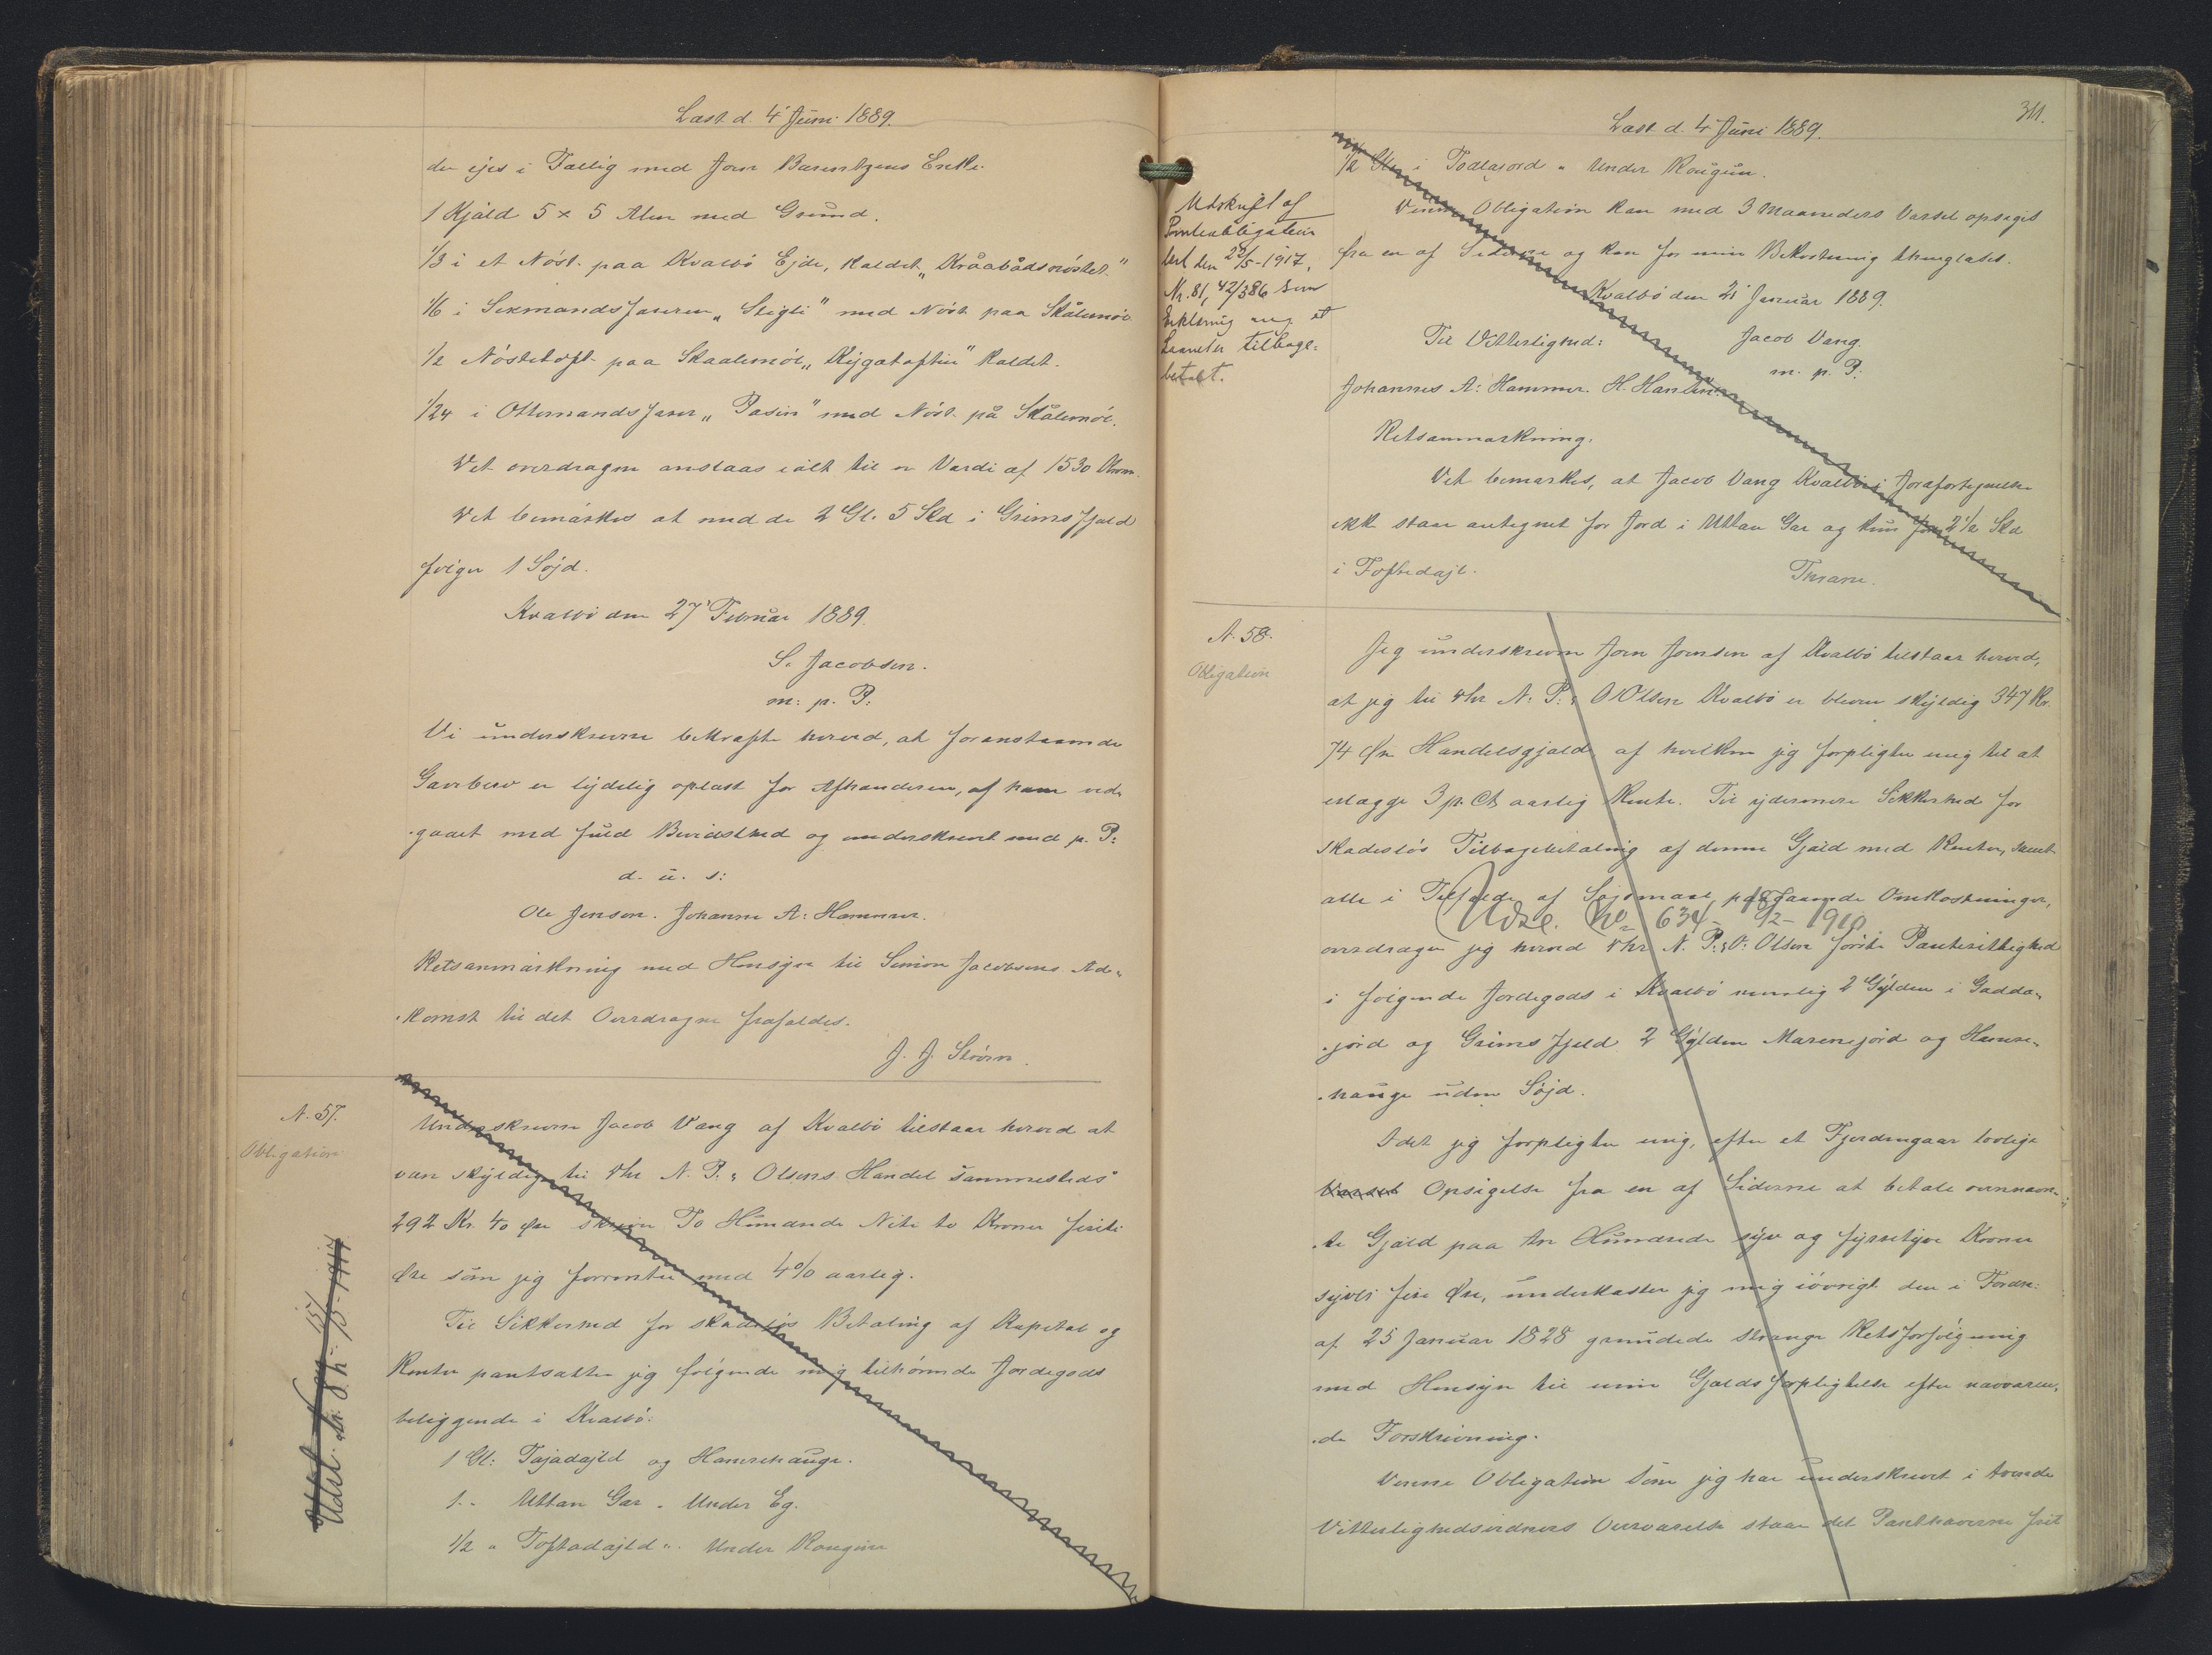 Læst d. 4 Juni 1889.
der ejes i Fællig med Joen Barentzens Enke.
1 Kjald 5 x 5 Alen med Grund.
1/3 i et Nöst paa Kvalbö Ejde, kaldet „Kråabådsnöstet"
1/6 i Sexmandsfareren „Stigti" med Nöst paa Skålemöl
1/2 Nöstetoft paa Skaalemöl „Rygatoftin" kaldet.
1/24 i Ottemandsfarer „Pasin" med Nöst på Skålemöl.
Det overdragne anslaas ialt til en Værdi af 1530 Kroner.
Det bemærkes at med de 2 Gl. 5 Skd i Grimsfjæld
følger 1 Söjd.
Kvalbö den 27 Februar 1889.
S. Jacobsen.
m: p. P:
Vi underskrevne bekræfte herved, at foranstaaende
Gavebrev er lydelig oplæst for Afhænderen, af ham ved-
gaaet med fuld Bevidsthed og underskrevet med p. P:
d. u. s:
Ole Jensen. Johannes A: Hammer.
Retsanmærkning med Hensyn til Simon Jacobsens Ad-
komst til det Overdragne frafaldes.
J. J. Stórn.
N. 57.
Obligation
Underskrevne Jacob Vang af Kvalbö tilstaar herved at
være skyldig til Hr N. P. & Olsens Handel sammesteds
292 Kr. 40 Øre skriver To Hundrede Niti to Kroner firti
Øre som jeg forrenter med 4% aarlig.
Til Sikkerhed for skadeslös Betaling af Kapital og
Renter pantsætter jeg fölgende mig tilhörende Jordegods
beliggende i Kvalbö:
1 Gl: Tajadajld og Hamrehauge.
1 - Uttan Gar - Under Eg.
1/2 " Toftadajld ". Under Rougun
Udsl. Nr. 84 - 15/5 - 1917
Læst d. 4 Juni 1889.
311.
Udskrift af
Panteobligation
læst den 22/5-1917,
Nr. 81, 42/386 som
Erklæring ang. at
Laanet er tilbage-
betalt.
1/2 Gl. i Todlasord " Under Rougun.
Denne Obligation kan med 3 Maaneders Varsel opsiges
fra en af Siderne og kan for min Bekostning thinglæses.
Kvalbö den 21 Januar 1889.
Til Vitterlighed: Jacob Vang.
m. p. P:
Johannes A: Hammer. H. Hansen.
Retsanmærkning.
Det bemærkes, at Jacob Vang Kvalbö i Jorafortegnelsen
ikke staar antegnet for Jord i Uttan Gar og kun for 2 1/2 Skd
i Toftedajl.
N. 58.
Obligation
Jeg underskrevne Joen Joensen af Kvalbö tilstaar herved,
at jeg til Hr N: P: & O Olsen Kvalbö er bleven skyldig 347 Kr.
74 Øre Handelsgjæld af hvilken jeg forpligter mig til at
erlægge 3 p. Ct aarlig Rente. Til ydermere Sikkerhed for
skadeslös Tilbagebetaling af denne Gjæld med Renter, samt
alle i Tilfælde af Söjsmaal paafaaende Omkostninger,
Udsl. No 634 - 18/2 - 1910
overdrager jeg herved Hr N. P. & O: Olsen förste Panterettighed
i fölgende Jordegods i Kvalbö nemlig 2 Gylden i Gadda-
jord og Grimsfjeld 2 Gylden Marenejord og Hamre-
hauge uden Söjd.
Idet jeg forpligter mig, efter et Fjerdingaars lovlige
Varsel Opsigelse fra en af Siderne at betale ovennævn-
te Gjæld paa tre Hundrede syv og fyrretyve Kroner
syvti fire Øre, underkaster jeg mig iövrigt den i Fordn:
af 25 Januar 1828 grundede strænge Retsforfölgning
med Hensyn til min Gjældsforpligtelse efter nærværen-
de Forskrivning.
Denne Obligation som jeg har underskrevet i tvende
Vitterlighedsvidners Overværelse staar det Panthaverne frit